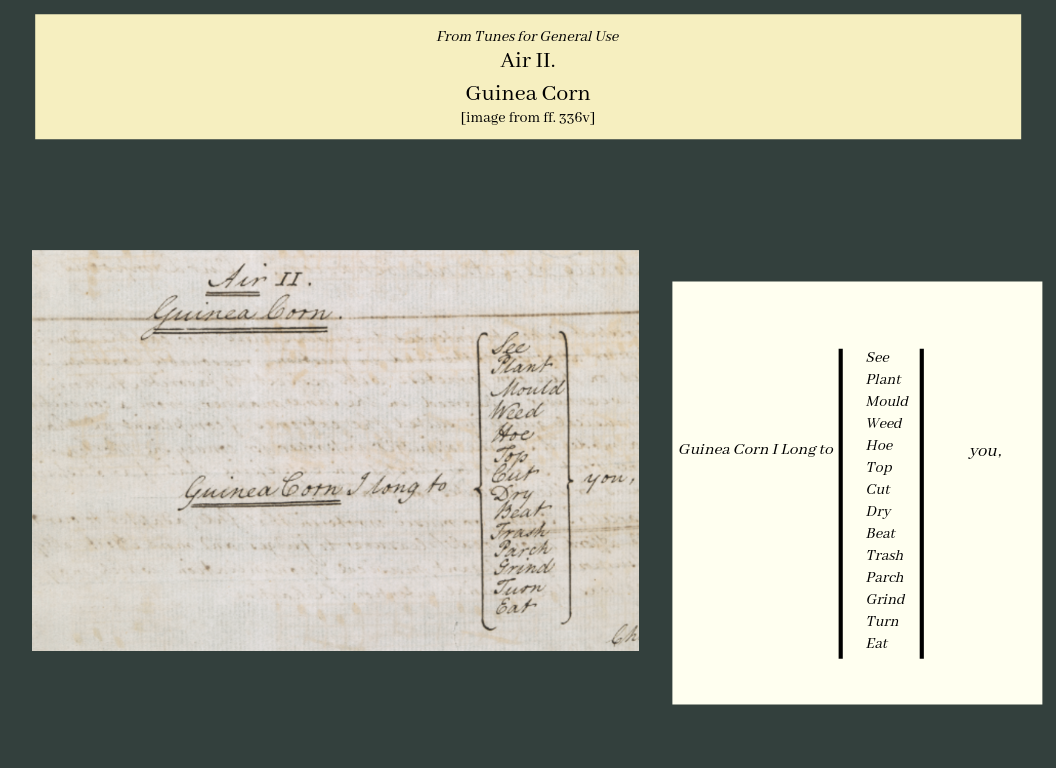 From Tunes for General Use
Air II.
Guinea Corn
[image from ff. 336v]
Air II.
Guinea Corn.
See
Plant
Mould
Weed
Hoe
Top
Cut
Guinea Corn I long to
you,
Dry
Beat
Trash
Parch
Grind
Turn
Eat
Ch
See
Plant
Mould
Weed
Hoe
Guinea Corn I Long to
you,
Top
Cut
Dry
Beat
Trash
Parch
Grind
Turn
Eat